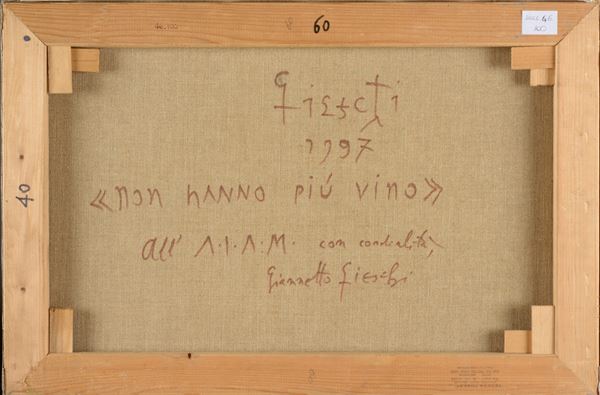 60
40
Fieschi
1997
«non hANNO più vino»
all' A.I.A.M. con cordialità,
Giannetto Fieschi